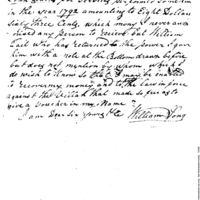 in the year 1792 amounting to Eight Dollars
Sixty three Cents, which money I never
any person to receive but William
Carl who has returned the power I gave
him with a note at the Bottom drawn before
but does not mention by whom which I
do wish to know so that I may be enabled
to recover my money and to the law in force
against the Villain that made so free as to
give a voucher in my Name
I am Dear Sir yours &c
William Long